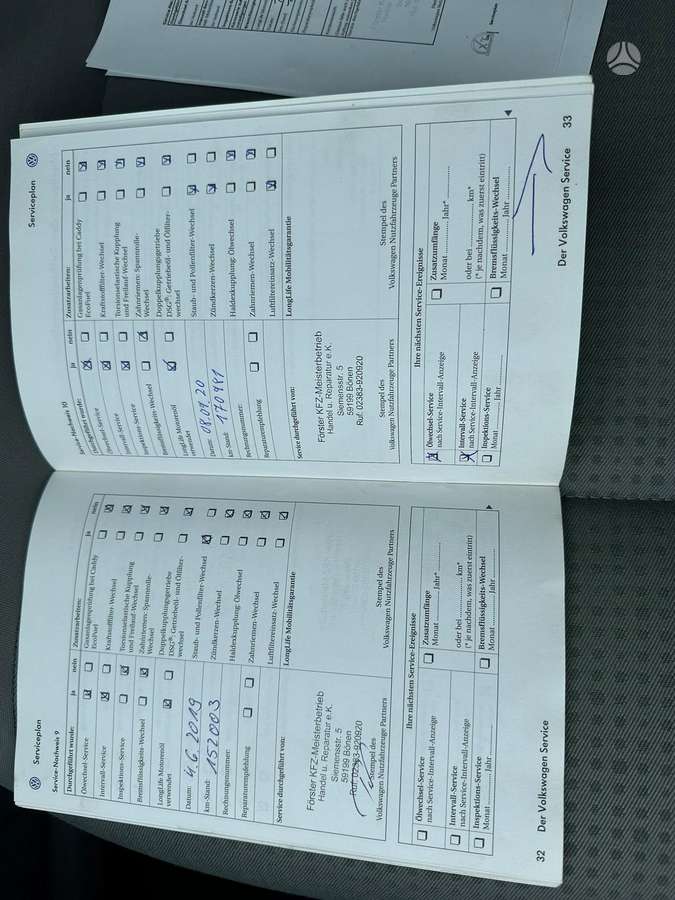 Serviceplan
Service-Nachweis 9
Durchgeführt wurde:
ja
nein
Ölwechsel-Service
Intervall-Service
Inspektions-Service
Bremsflüssigkeits-Wechsel
LongLife Motorenöl
verwendet
Datum: 4.6.2019
km-Stand: 152003
Rechnungsnummer:
Reparaturempfehlung
Service durchgeführt von:
Förster KFZ-Meisterbetrieb
Handel u. Reparatur e.K.
Siemensstr. 5
59199 Bönen
Ruf: 02383-920920
Stempel des
Volkswagen Nutzfahrzeuge Partners
Zusatzarbeiten:
ja
nein
Gasanlagenprüfung bei Caddy
EcoFuel
Kraftstofffilter-Wechsel
Torsionselastische Kupplung
und Freilauf-Wechsel
Zahnriemen: Spannrolle-
Wechsel
Doppelkupplungsgetriebe
DSG®: Getriebeöl- und Ölfilter-
wechsel
Staub- und Pollenfilter-Wechsel
Zündkerzen-Wechsel
Haldexkupplung: Ölwechsel
Zahnriemen-Wechsel
Luftfiltereinsatz-Wechsel
LongLife Mobilitätsgarantie
Stempel des
Volkswagen Nutzfahrzeuge Partners
Ihre nächsten Service-Ereignisse
Ölwechsel-Service
nach Service-Intervall-Anzeige
Intervall-Service
nach Service-Intervall-Anzeige
Inspektions-Service
Monat ........ Jahr
Zusatzumfänge
Monat ........ Jahr*
oder bei ........ km*
(* je nachdem, was zuerst eintritt)
Bremsflüssigkeits-Wechsel
Monat ........ Jahr
32
Der Volkswagen Service
Serviceplan
Service-Nachweis 10
Durchgeführt wurde:
ja
nein
Ölwechsel-Service
Intervall-Service
Inspektions-Service
Bremsflüssigkeits-Wechsel
LongLife Motorenöl
verwendet
km-Stand: 170981
Rechnungsnummer:
Reparaturempfehlung
Service durchgeführt von:
Förster KFZ-Meisterbetrieb
Handel u. Reparatur e.K.
Siemensstr. 5
59199 Bönen
Ruf: 02383-920920
Stempel des
Volkswagen Nutzfahrzeuge Partners
Zusatzarbeiten:
ja
nein
Gasanlagenprüfung bei Caddy
EcoFuel
Kraftstofffilter-Wechsel
Torsionselastische Kupplung
und Freilauf-Wechsel
Zahnriemen: Spannrolle-
Wechsel
Doppelkupplungsgetriebe
DSG®: Getriebeöl- und Ölfilter-
wechsel
Staub- und Pollenfilter-Wechsel
Zündkerzen-Wechsel
Haldexkupplung: Ölwechsel
Zahnriemen-Wechsel
Luftfiltereinsatz-Wechsel
LongLife Mobilitätsgarantie
Stempel des
Volkswagen Nutzfahrzeuge Partners
Ihre nächsten Service-Ereignisse
Ölwechsel-Service
nach Service-Intervall-Anzeige
Intervall-Service
nach Service-Intervall-Anzeige
Inspektions-Service
Monat ........ Jahr
Zusatzumfänge
Monat ........ Jahr*
oder bei ........ km*
(* je nachdem, was zuerst eintritt)
Bremsflüssigkeits-Wechsel
Monat ........ Jahr
Der Volkswagen Service
33